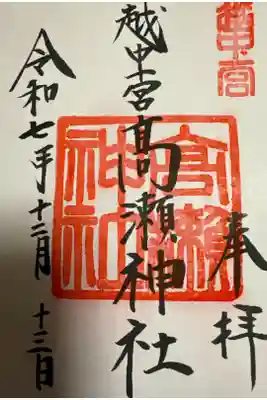 奉拝
越中宮
高瀬神社
越中宮髙瀬神社
令和七年十二月十三日